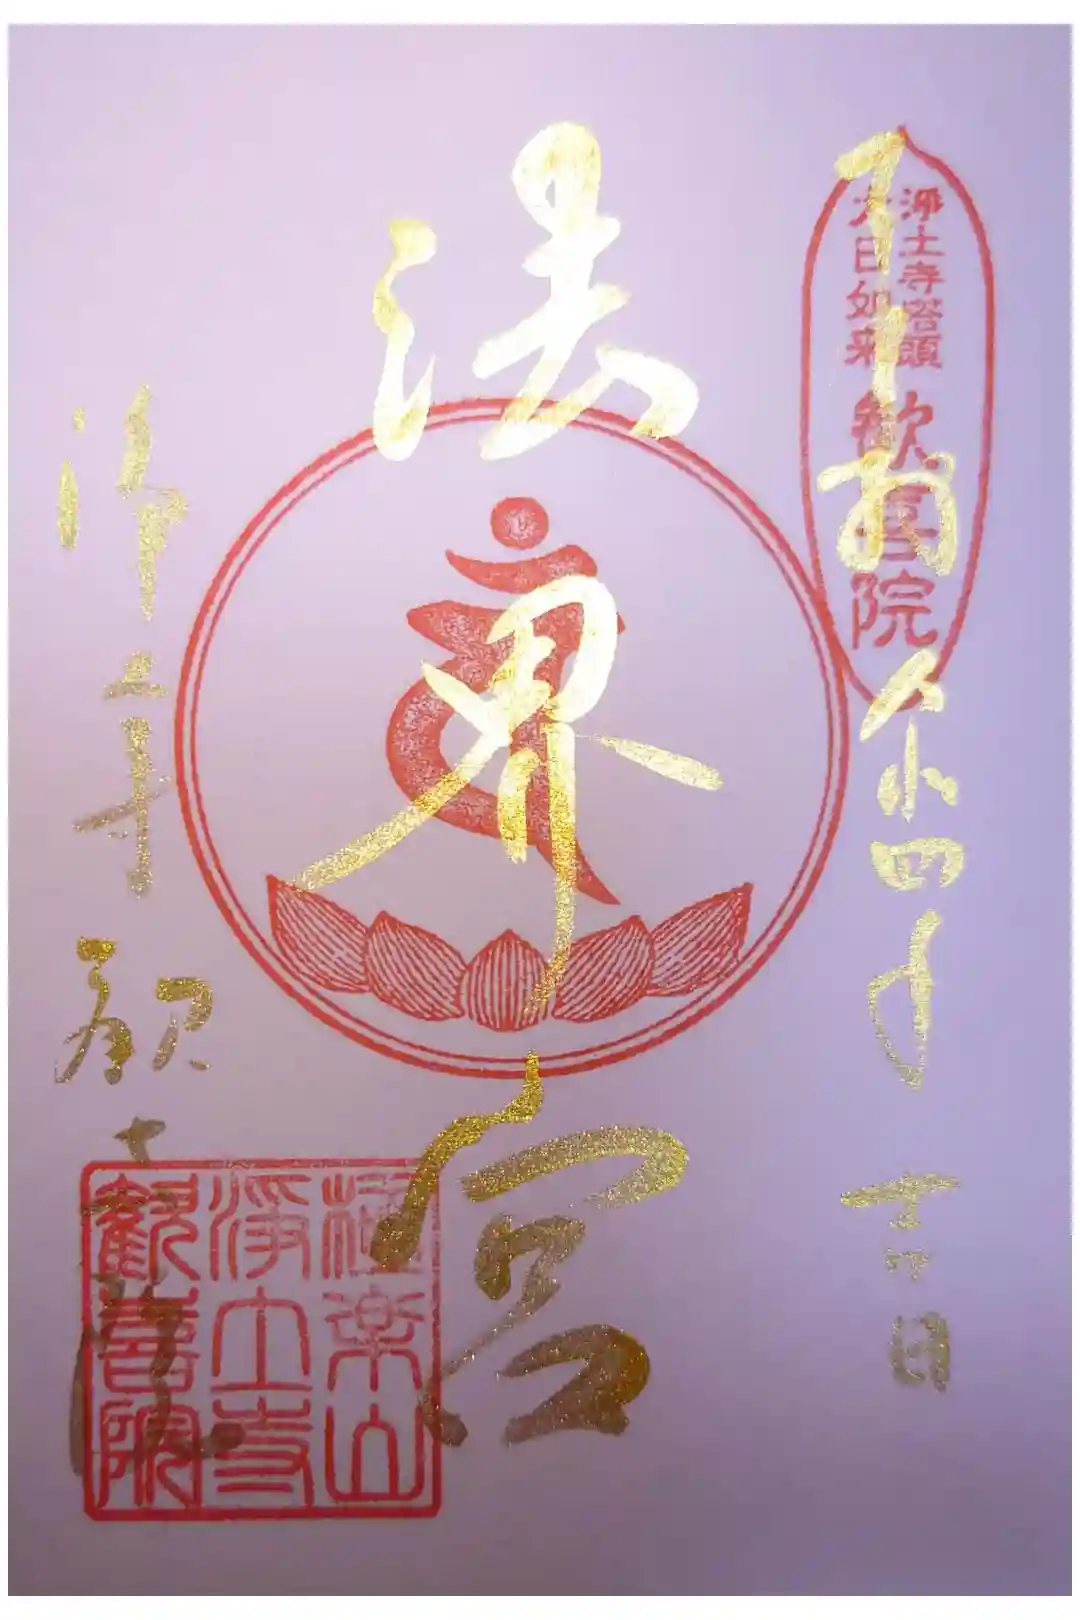 浄土寺塔頭
大日如来
歓喜院
令和四年 吉日
法界宮
浄土寺歓喜院
極楽山
浄土寺
歡喜院